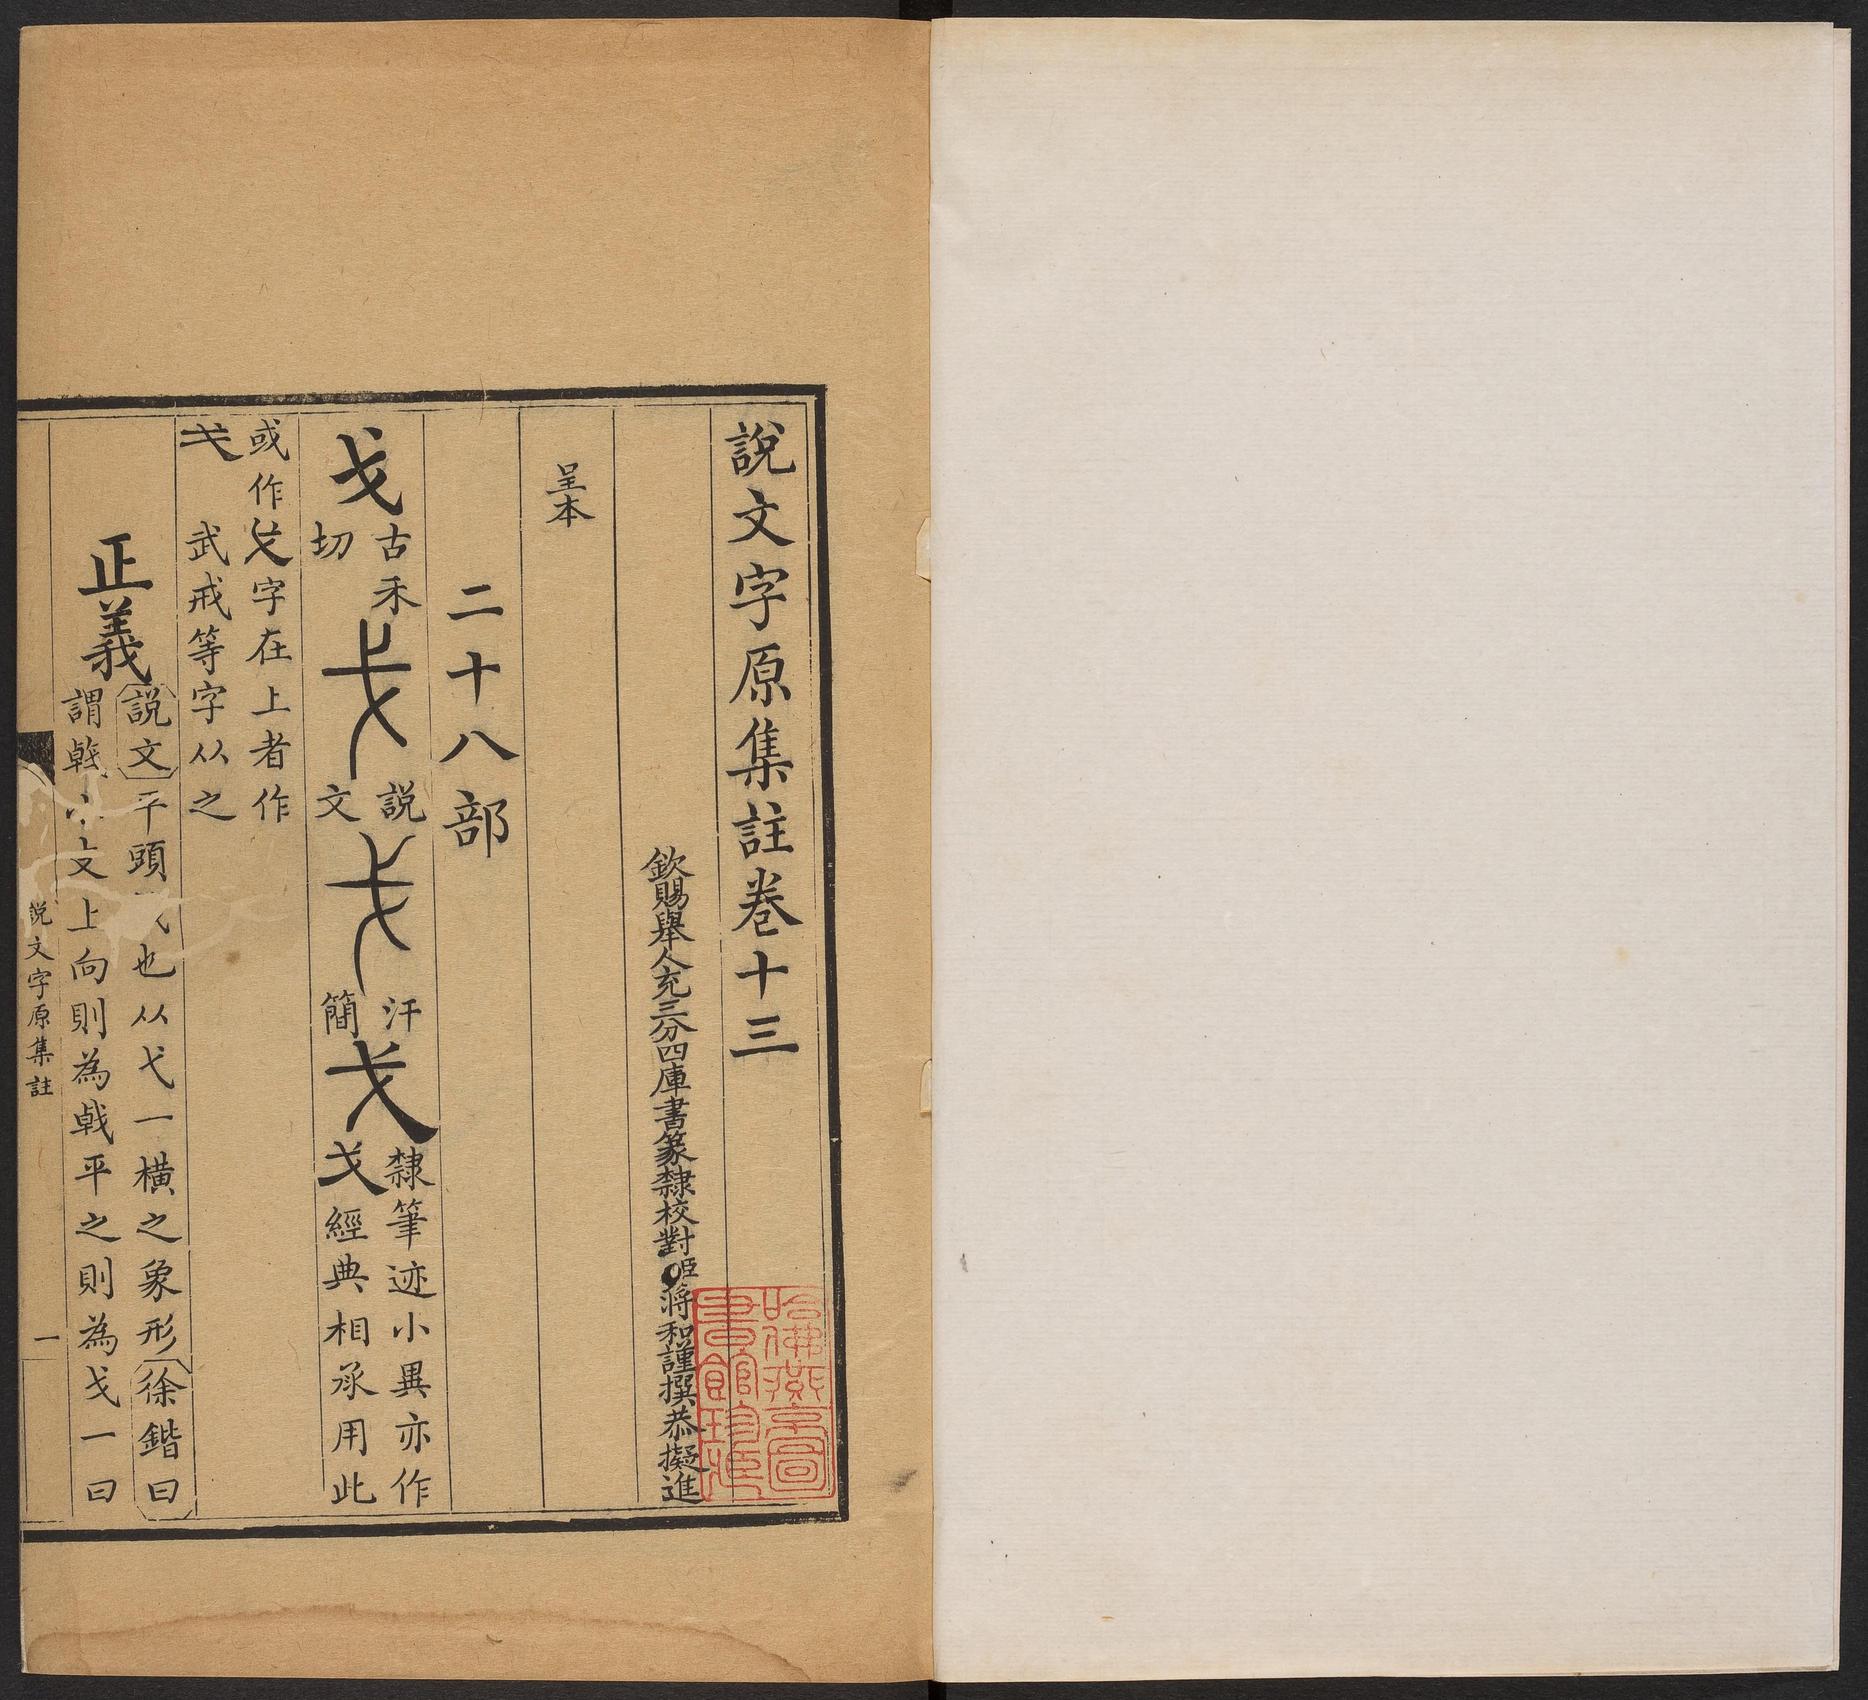 說文字原集註卷十三
欽賜舉人充三分四庫書篆隸校對臣蔣和謹撰恭擬進
呈本
二十八部
戈 古禾切 戈 說文 戈 汗簡 戈 隸筆迹小異亦作戈經典相承用此
或作 字在上者作
武戒等字从之
正義 說文平頭 也从弋一橫之象形徐鍇曰
謂戟 文上向則為戟平之則為戈一曰
說文字原集註 一
哈佛燕京圖書館珍藏